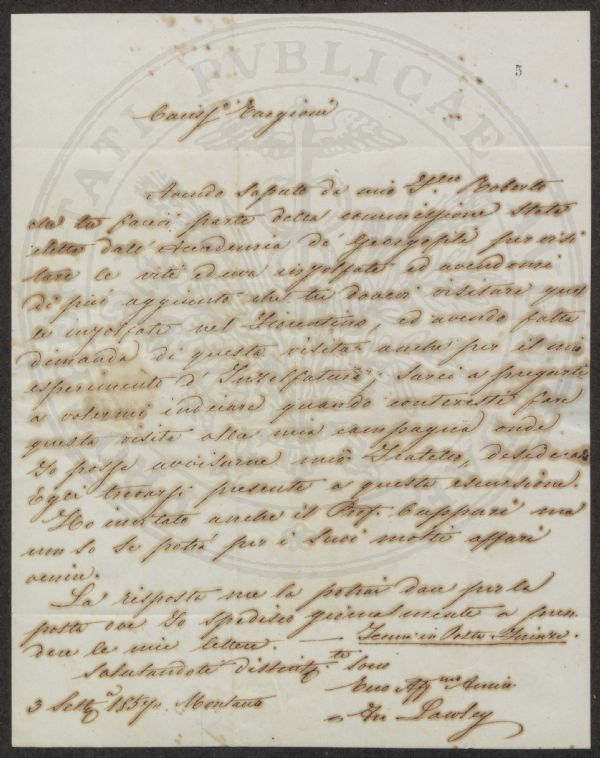 5
Cariss.º Targioni
Avendo saputo da mio Roberto
che tu facei parte della commissione stata
eletta dall' Accademia de' Georgofili per visi
tare le viti ed uva insolfate ed avendomi
di più aggiunto che tu dovevi visitare quel
le insolfate nel Fiorentino, ed avendo fatta
dimanda di questa visita anche per il mio
esperimento d' Insolfatura, sarei a pregarti
a volermi indicare quando conteresti fare
questa visita alla mia campagna onde
Io possa avvisarne mio Fratello, desidera
Egli trovarsi presente a questa escursione.
Ho invitato anche il Prof. Cuppari ma
non so se potrà per i suoi molti affari
venire.
La risposta me la potrai dare per la
posta ove Io spedisco giornalmente a pren
dere le mie lettere. — Ferma in Posta
Salutandoti distint.te Sono
Tuo Aff.mo Amico
Lawley
3 Sett. 1857.